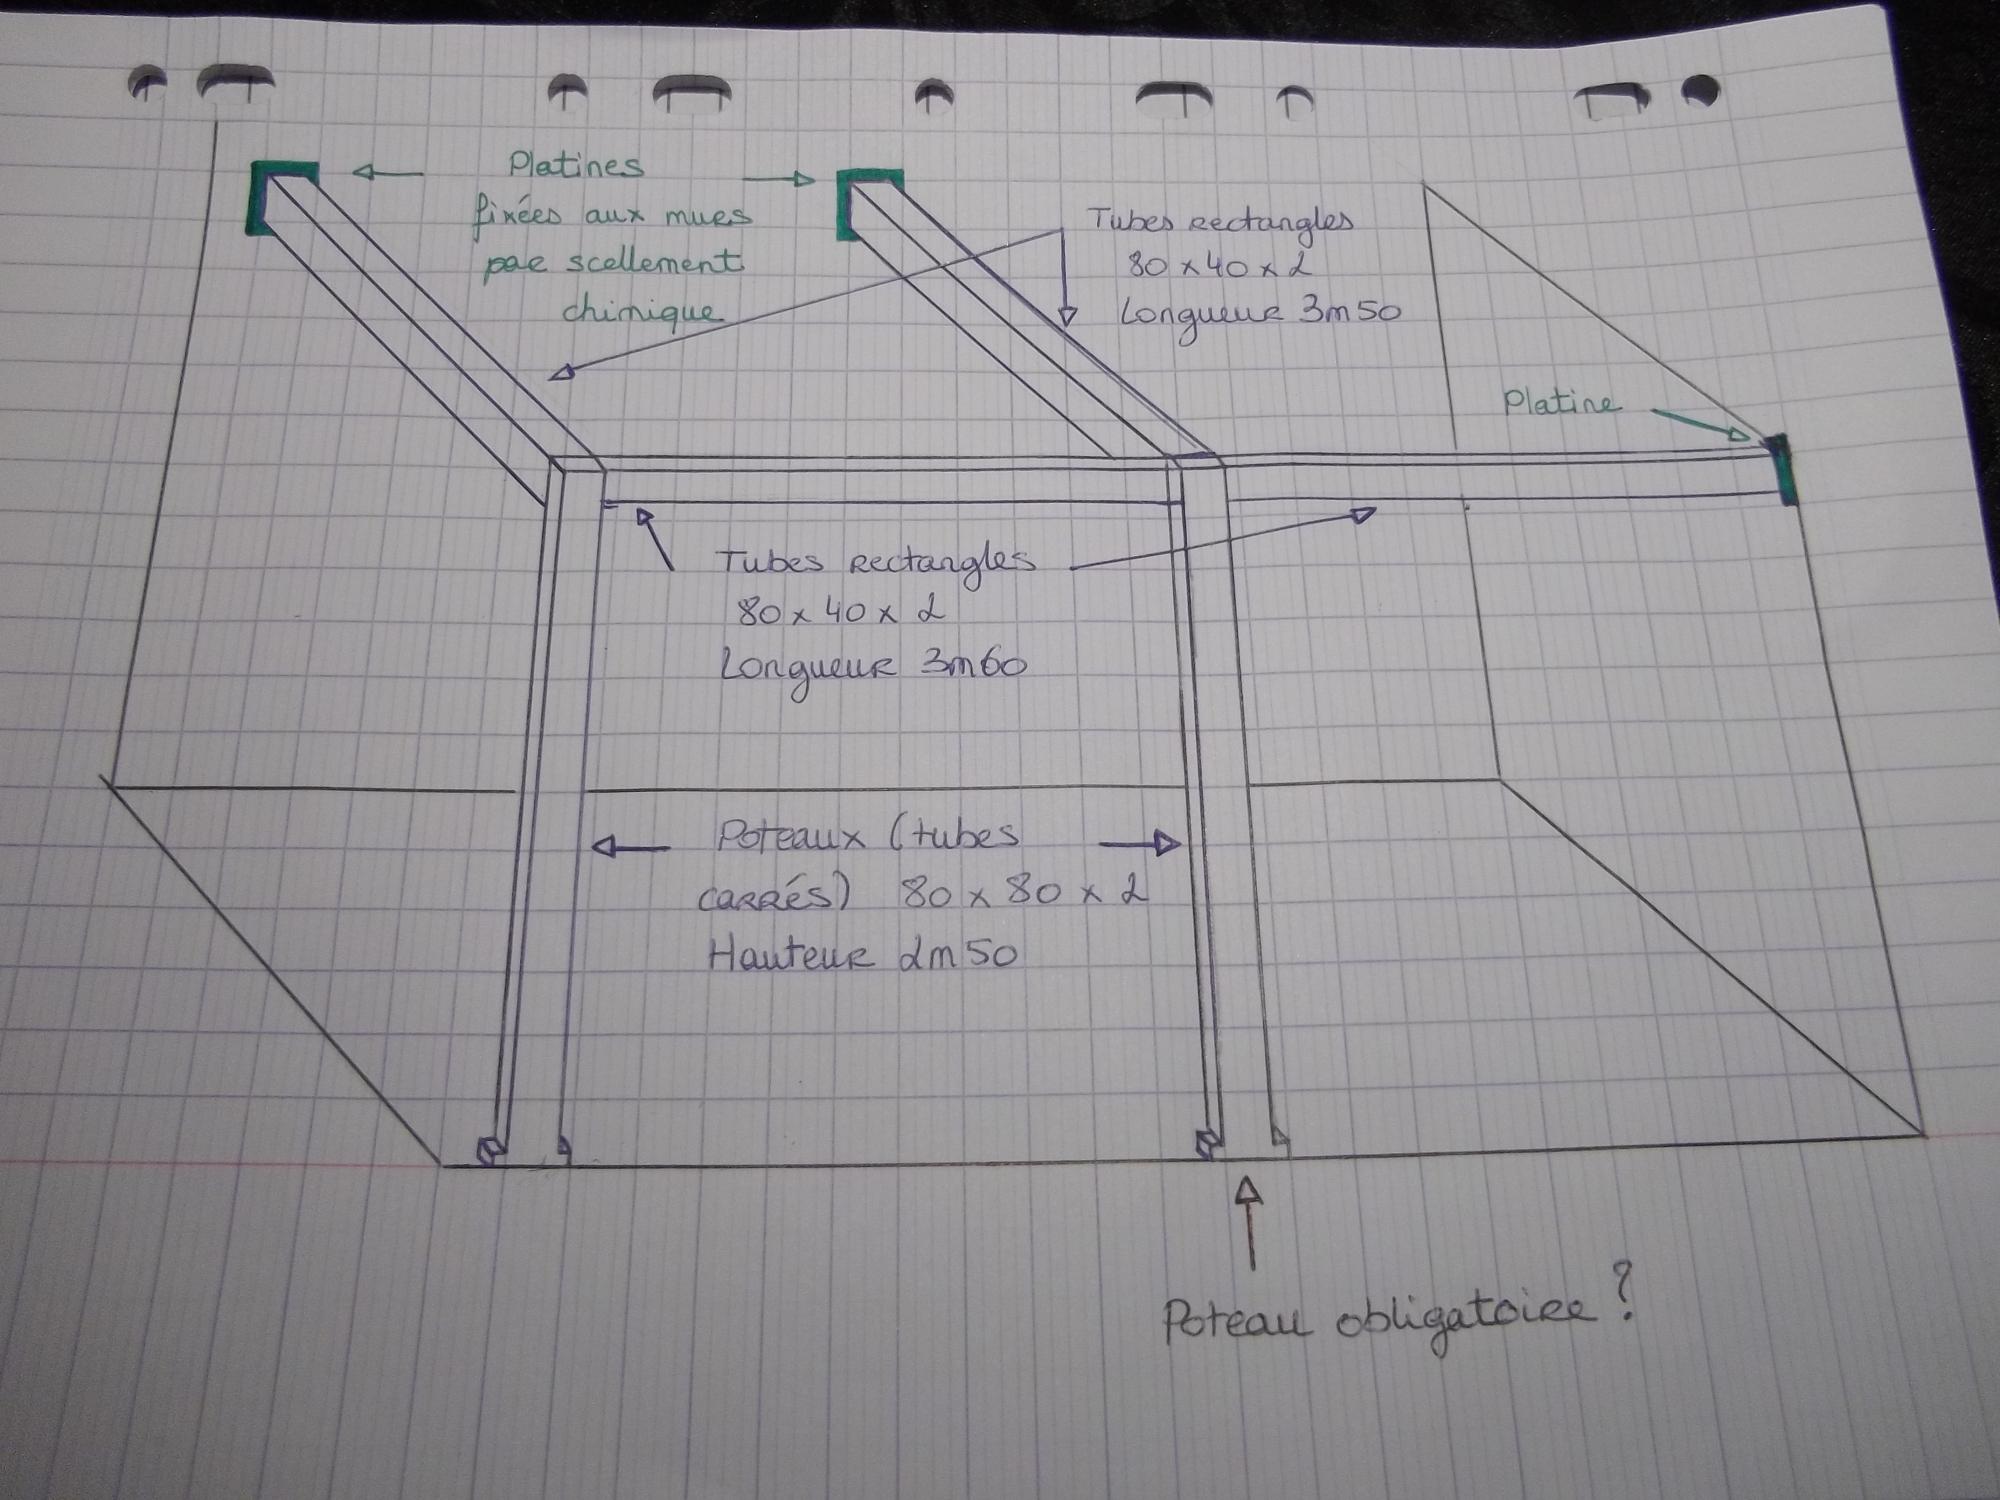 Platines
fixées aux murs
par scellement
chimique
Tubes rectangles
80 x 40 x 2
Longueur 3m50
Platine
Tubes rectangles
80 x 40 x 2
Longueur 3m60
Poteaux (tubes
carrés) 80 x 80 x 2
Hauteur 2m50
Poteau obligatoire ?